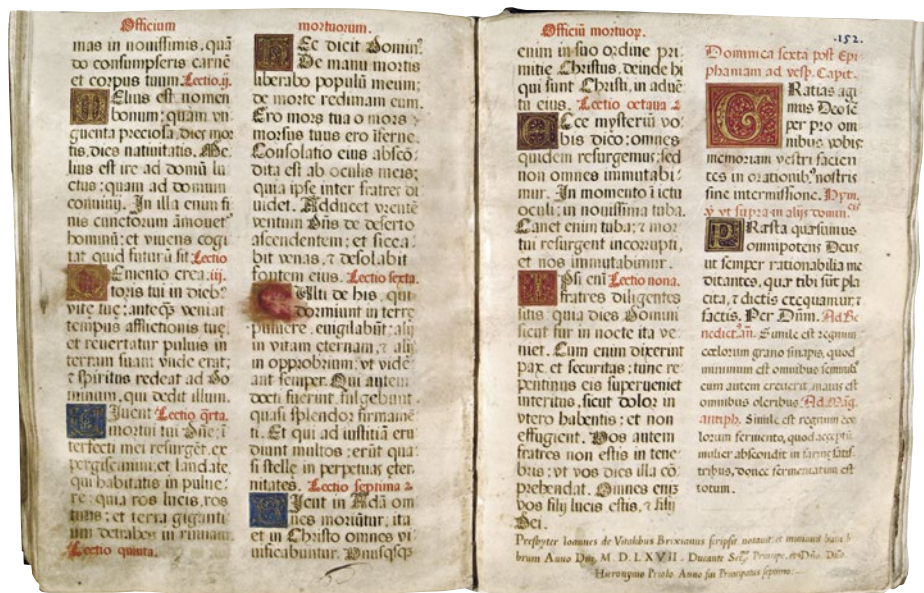 Officium
mas in nouissimis, quã
do consumpseris carnẽ
et corpus tuum. Lectio.ij.
Melius est nomen
bonum: quam vn
guenta preciosa, dies mor
tis, dies natiuitatis. Me
lius est ire ad domũ lu
ctus: quam ad domum
conuiuij. In illa enim fi
nis cunctorum ãmonet᷒
hominũ: et viuens cogi
tat quid futurũ sit. Lectio
Memento crea. iij.
toris tui in dieb᷒
vite tue: anteq̃ veniat
tempus afflictionis tue,
et reuertatur puluis in
terram suam vnde erat:
⁊ spiritus redeat ad Do
minum, qui dedit illum.
Viuent Lectio q̃rta.
mortui tui Dñe: i
terfecti mei resurgẽt. ex
pergiscimini: et laudate,
qui habitatis in pulue
re: quia ros lucis, ros
tuus: et terrã giganti
um detrahes in ruinam.
Lectio quinta.
mortuorum.
Hec dicit Domin᷒
De manu mortis
liberabo populũ meum:
de morte redimam eum.
Ero mors tua o mors
morsus tuus ero iferne.
Consolatio eius abscõ
dita est ab oculis meis:
quia ipse inter fratres di
uidet. Adducet vrentẽ
ventum Dñs de deserto
ascendentem: et sicca
bit venas, ⁊ desolabit
fontem eius. Lectio sexta.
Multi de his, qui
dormiunt in terre
puluere, euigilabũt: alij
in vitam eternam, ⁊ alij
in opprobrium: vt vide
ant semper. Qui autem
docti fuerint, fulgebunt
quasi splendor firmamẽ
ti. Et qui ad iustitiã eru
diunt multos: erũt qua
si stelle in perpetuas eter
nitates. Lectio septima
Sicut in Adã om
nes moriũtur: ita
et in Christo omnes vi
uificabuntur. Vnusqsq̃
Officiũ mortuoꝝ.
enim in suo ordine pri
mitie Christus, deinde hi
qui sunt Christi, in aduẽ
tu eius. Lectio octaua
Ecce mysteriũ vo
bis dico: omnes
quidem resurgemus: sed
non omnes immutabi
mur. In momento i ictu
oculi: in nouissima tuba.
Canet enim tuba: ⁊ mor
tui resurgent incorrupti,
et nos immutabimur.
Ipsi eni Lectio nona.
fratres diligentes
scitis quia dies Domini
sicut fur in nocte ita ve
niet. Cum enim dixerint
pax et securitas: tunc re
pentinus eis superueniet
interitus, sicut dolor in
vtero habentis: et non
effugient. Vos autem
fratres non estis in tene
bris: vt vos dies illa cõ
prehendat. Omnes enim
vos filij lucis estis, ⁊ filij
Dei.
.152.
Dominica sexta post Epi
phaniam ad vesp. Capit.
Gratias agi
mus Deo sẽ
per pro om
nibus vobis:
memoriam vestri facien
tes in orationib᷒ nostris
sine intermissione. Hym.
℣ vt supra in alijs domin.cis
Præsta quæsumus
omnipotens Deus
ut semper rationabilia me
ditantes, quæ tibi sũt pla
cita, ⁊ dictis exequamur, ⁊
factis. Per Dñm. Ad Be
nedict᷒. añ. Simile est regnum
cœlorum grano sinapis, quod
minimum est omnibus seminib᷒
cum autem creuerit maius est
omnibus oleribus. Ad Mag.
antiph. Simile est regnum cœ
lorum fermento, quod acceptũ
mulier abscondit in farinę satis
tribus, donec fermentatum est
totum.
Presbyter Ioannes de Vitalibus Brixianus scripsit notauit, et miniauit hunc li
brum Anno Dñi. M. D. LXVII. Ducante Ser.mo Principe, et Dño. Dño.
Hieronymo Priolo Anno sui Principatus septimo.